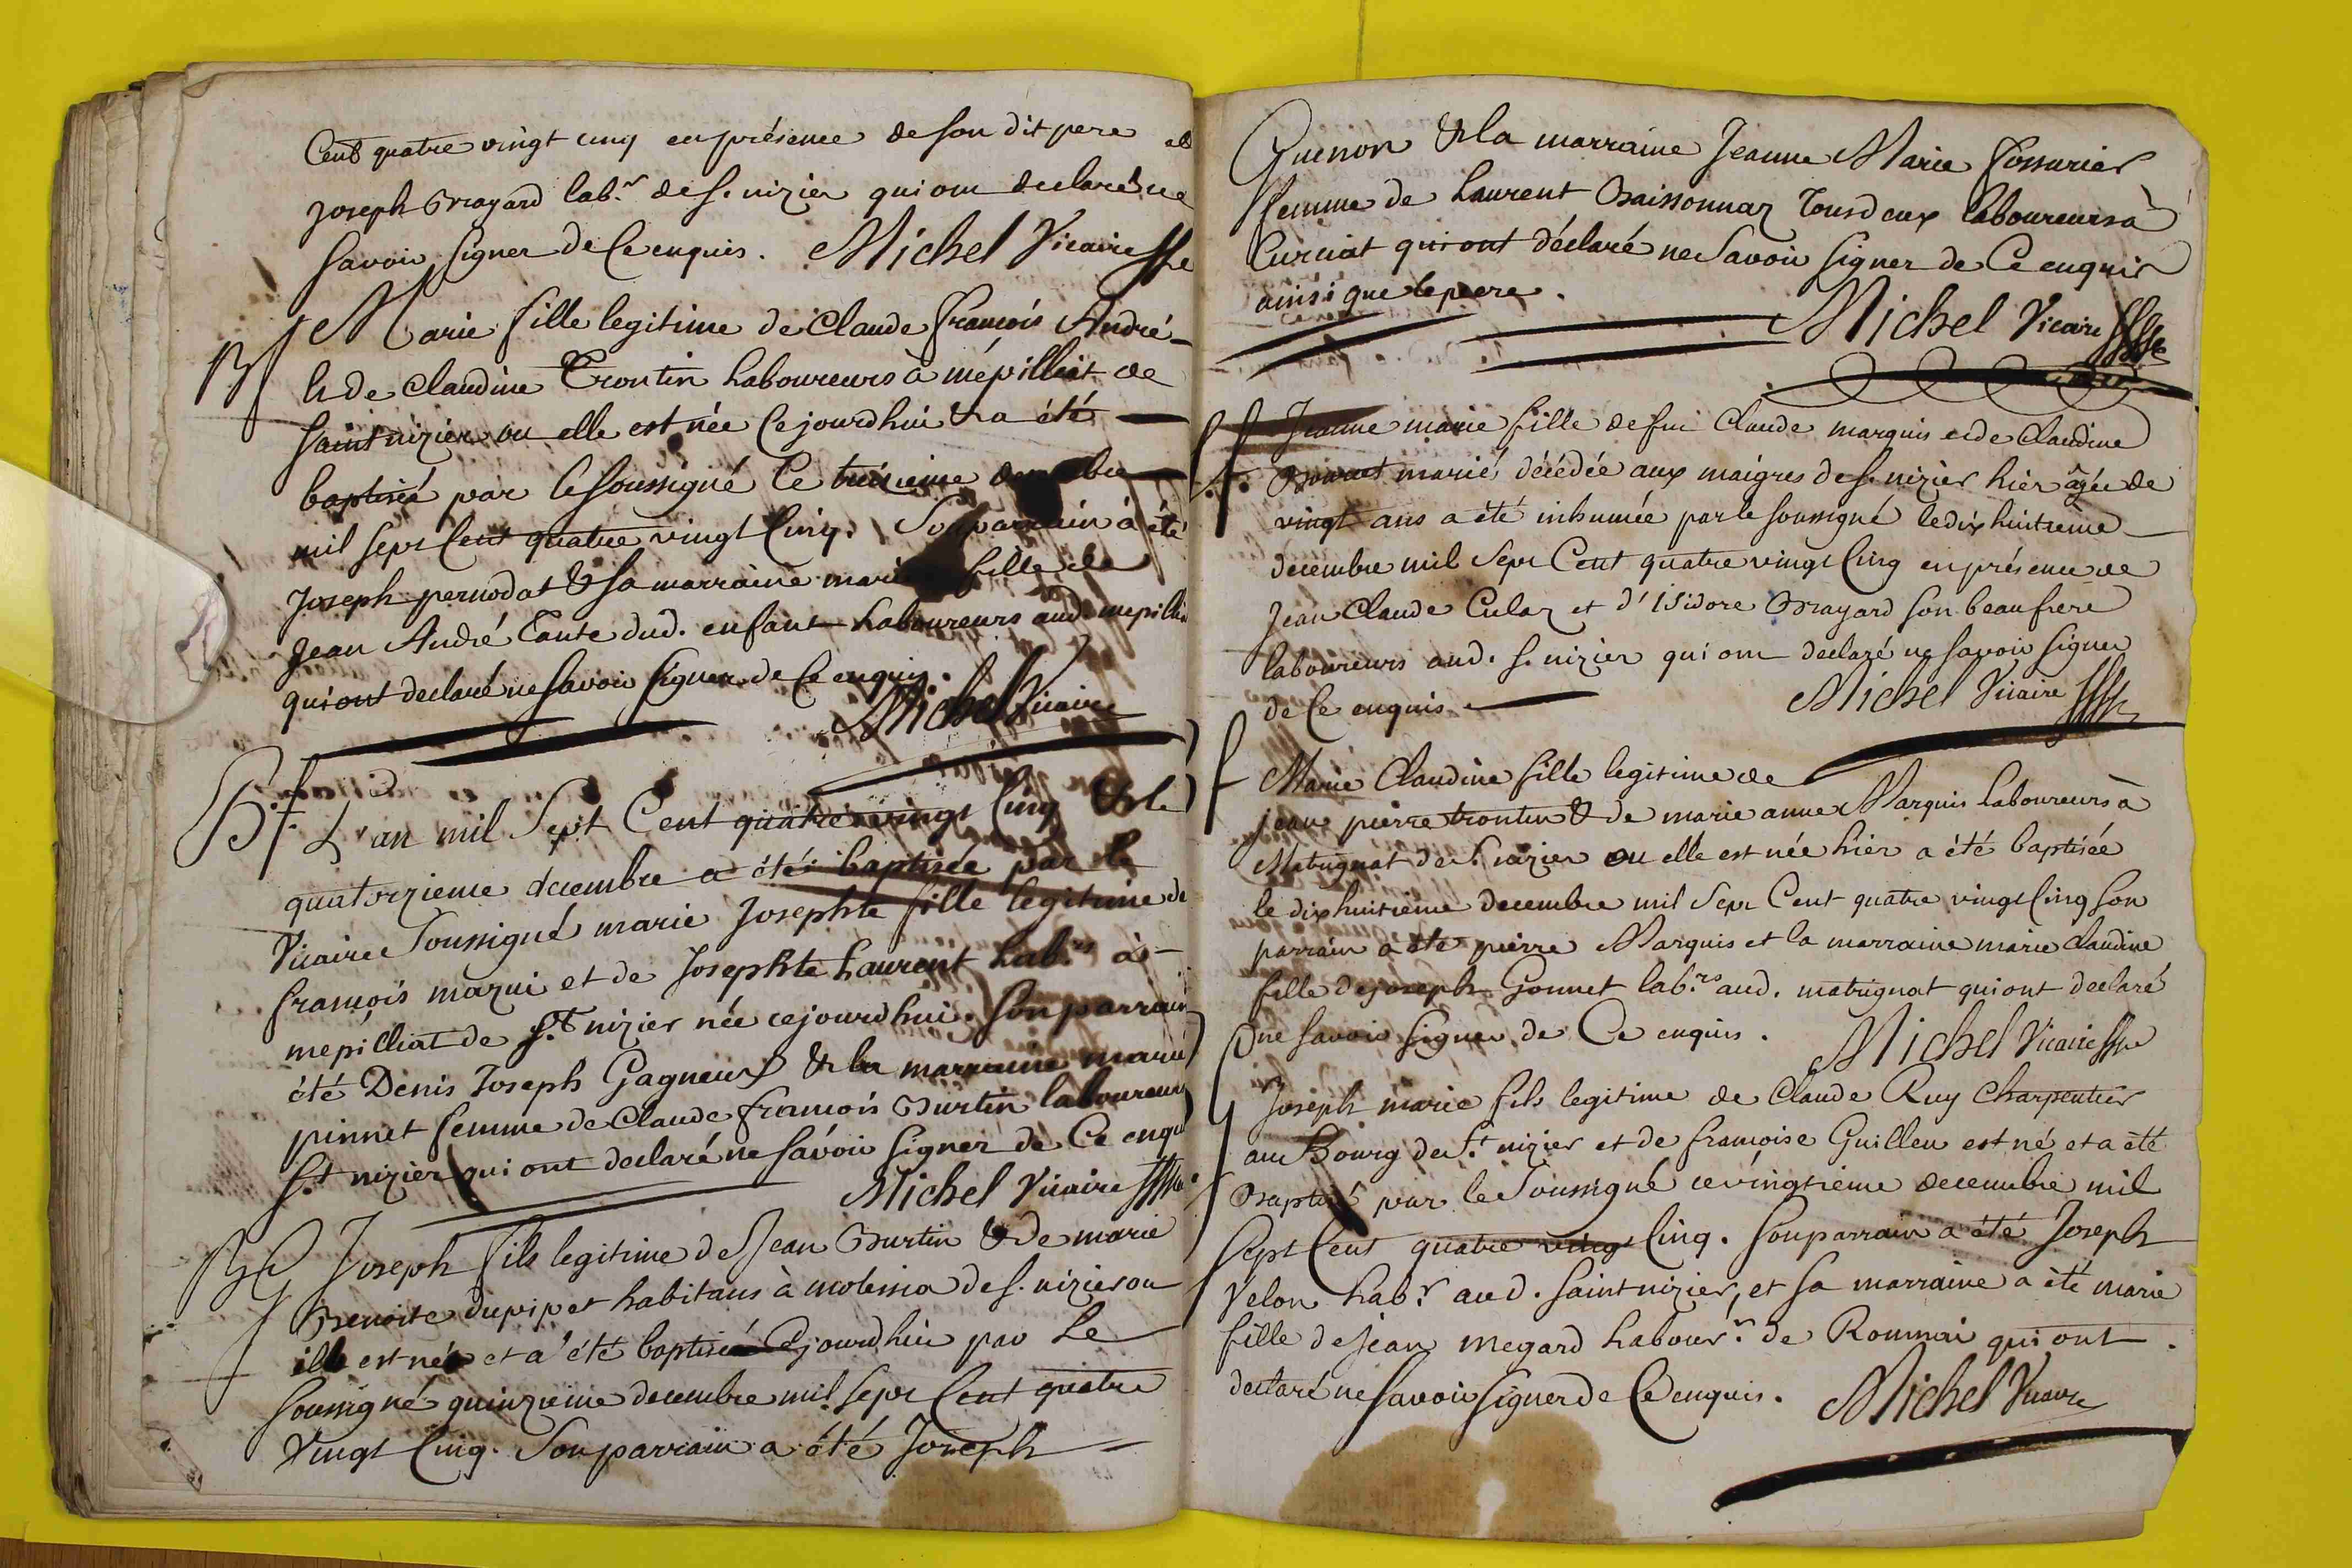 Cent quatre vingt cinq en présence de son dit pere et
joseph Brayard lab.r de s. nizier qui ont declaré ne
savoir signer de Ce enquis. Michel Vicaire
Marie fille legitime de Claude françois André
& de Claudine Trontin Laboureurs à mépilliat de
saint nizier ou elle est née Cejourdhui & a été
baptisée par le soussigné le treizieme decembre
mil sept Cent quatre vingt Cinq. Son parrain à été
Joseph pernodat & sa marraine marie fille de
Jean André Tante dud. enfant Laboureurs aud. mepilliat
qui ont declaré ne savoir signer de Ce enquis.
Michel Vicaire
B.f L'an mil Sept Cent quatre vingt Cinq & le
quatorzieme decembre a été baptisée par le
Vicaire Soussigné marie Josephte fille legitime de
françois marqui et de Josephte Laurent Lab.rs à
mepilliat de S.t nizier née cejourdhui. Son parrain
été Denis Joseph Gagneux & la marraine marie
pinnet femme de Claude françois Burtin laboureurs
S.t nizier qui ont declaré ne sávoir signer de Ce enqu
Michel Vicaire
BG Joseph fils legitime de Jean Burtin & de marie
Benoite dupipet habitans à molinia de s. nizier ou
ille est né et a été baptisé Cejourdhui par Le
soussigné quinzieme decembre mil sept Cent quatre
Vingt Cinq. Son parrain a été Joseph
Guenon & la marraine Jeanne Marie
femme de Laurent Baissonnaz Tous deux laboureurs à
Curciat qui ont déclaré ne Savoir signer de Ce enquis
ainsi que le pere.
Michel Vicaire
Jeanne marie fille de feu Claude marquis et de Claudine
marié, décédée aux maigres de s. nizier hier âgée de
vingt ans a été inhumée par le soussigné le dix huitième
decembre mil Sept Cent quatre vingt Cinq en présence de
Jean Claude Culaz et d'isidore Brayard son beau frere
laboureurs aud. s. nizier qui ont declaré ne savoir signer
de Ce enquis.
Michel Vicaire
f Marie Claudine fille legitime de
jean pierre trontin & de marie anne Marquis laboureurs à
Matrignat de S. nizier ou elle est née hier a été baptisée
le dixhuitieme decembre mil Sept Cent quatre vingt Cinq Son
parrain a été pierre Marquis et la marraine marie Claudine
fille de joseph Gonnet lab.rs aud. matrignat qui ont declaré
ne savoir signer de Ce enquis.
Michel Vicaire
G Joseph marie fils legitime de Claude Ruy Charpentier
au Bourg de S.t nizier et de françoise Guillen est né et a été
Baptisé par le Soussigné ce vingtieme decembre mil
Sept Cent quatre vingt Cinq. Son parrain a été Joseph
Velon hab.r aud. saint nizier, et sa marraine a été marie
fille de jean megard Labour.r de Romnai qui ont
declaré ne savoir signer de Ce enquis. Michel Vicaire